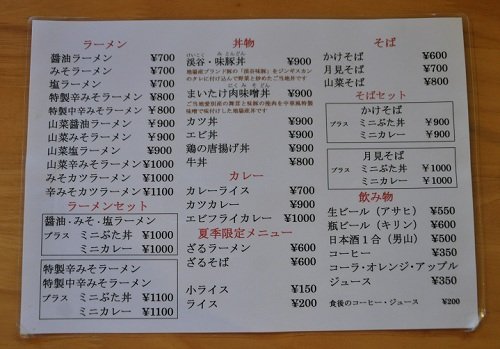 ラーメン
醤油ラーメン ¥700
みそラーメン ¥700
塩ラーメン ¥700
特製辛みそラーメン ¥800
特製中辛みそラーメン ¥800
山菜醤油ラーメン ¥900
山菜みそラーメン ¥900
山菜塩ラーメン ¥900
山菜辛みそラーメン ¥1000
みそカツラーメン ¥1000
辛みそカツラーメン ¥1100
ラーメンセット
醤油・みそ・塩ラーメン
プラス ミニぶた丼 ¥1000
ミニカレー ¥1000
特製辛みそラーメン
特製中辛みそラーメン
プラス ミニぶた丼 ¥1100
ミニカレー ¥1100
丼物
けいこく みとんどん
渓谷・味豚丼 ¥900
地場産ブランド豚の「渓谷味豚」をジンギスカン
のタレに付け込んで野菜と炒めたご当地丼です
にくみそどん
まいたけ肉味噌丼 ¥900
ご当地愛別産の舞茸と味豚の挽肉を中華風特製
味噌で味付けした地場産丼です
カツ丼 ¥900
エビ丼 ¥900
鶏の唐揚げ丼 ¥900
牛丼 ¥800
カレー
カレーライス ¥700
カツカレー ¥900
エビフライカレー ¥1000
夏季限定メニュー
ざるラーメン ¥600
ざるそば ¥600
小ライス ¥150
ライス ¥200
そば
かけそば ¥600
月見そば ¥700
山菜そば ¥800
そばセット
かけそば
プラス ミニぶた丼 ¥900
ミニカレー ¥900
月見そば
プラス ミニぶた丼 ¥1000
ミニカレー ¥1000
飲み物
生ビール（アサヒ） ¥550
瓶ビール（キリン） ¥600
日本酒1合（男山） ¥500
コーヒー ¥350
コーラ・オレンジ・アップル
ジュース ¥350
食後のコーヒー・ジュース ¥200